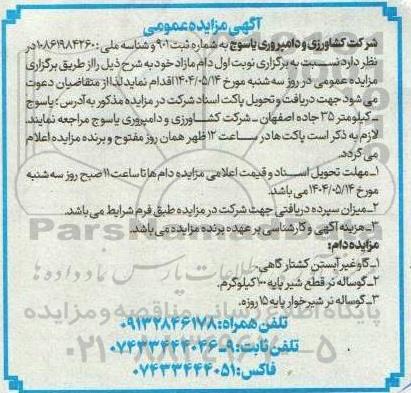 آگهی مزایده عمومی
شرکت کشاورزی و دامپروری یاسوج به شماره ثبت ۹۰۱ و شناسه ملی: ۱۰۸۶۱۹۸۴۲۶۰
نظر دارد نسبت به برگزاری نوبت اول دام مازاد خود به شرح ذیل را از طریق برگزاری
مزایده عمومی در روز سه شنبه مورخ ۱۴۰۴/۰۵/۱۴ اقدام نماید لذا از متقاضیان دعوت
می شود جهت دریافت و تحویل پاکت اسناد شرکت در مزایده مذکور به آدرس: یاسوج
ـ کیلومتر ۳۵ جاده اصفهان ـ شرکت کشاورزی و دامپروری یاسوج مراجعه نمایند.
لازم به ذکر است پاکت ها در ساعت ۱۲ ظهر همان روز مفتوح و برنده مزایده اعلام
می گردد.
۱ـ مهلت تحویل اسناد و قیمت اعلامی مزایده دام ها تا ساعت ۱۱ صبح روز سه شنبه
مورخ ۱۴۰۴/۰۵/۱۴ می باشد.
۲ـ میزان سپرده دریافتی جهت شرکت در مزایده طبق فرم شرایط می باشد.
۳ـ هزینه آگهی و کارشناسی بر عهده برنده مزایده می باشد.
مزایده دام:
۱ـ گاو غیر آبستن کشتار گاهی.
۲ـ گوساله نر قطع شیر پایه ۱۰۰ کیلوگرم.
۳ـ گوساله نر شیرخوار پایه ۱۵ روزه.
تلفن همراه: ۰۹۱۳۲۸۴۶۱۷۸
تلفن ثابت: ۹ـ۰۷۴۳۳۴۴۴۰۴۶
فاکس: ۰۷۴۳۳۴۴۴۰۵۱